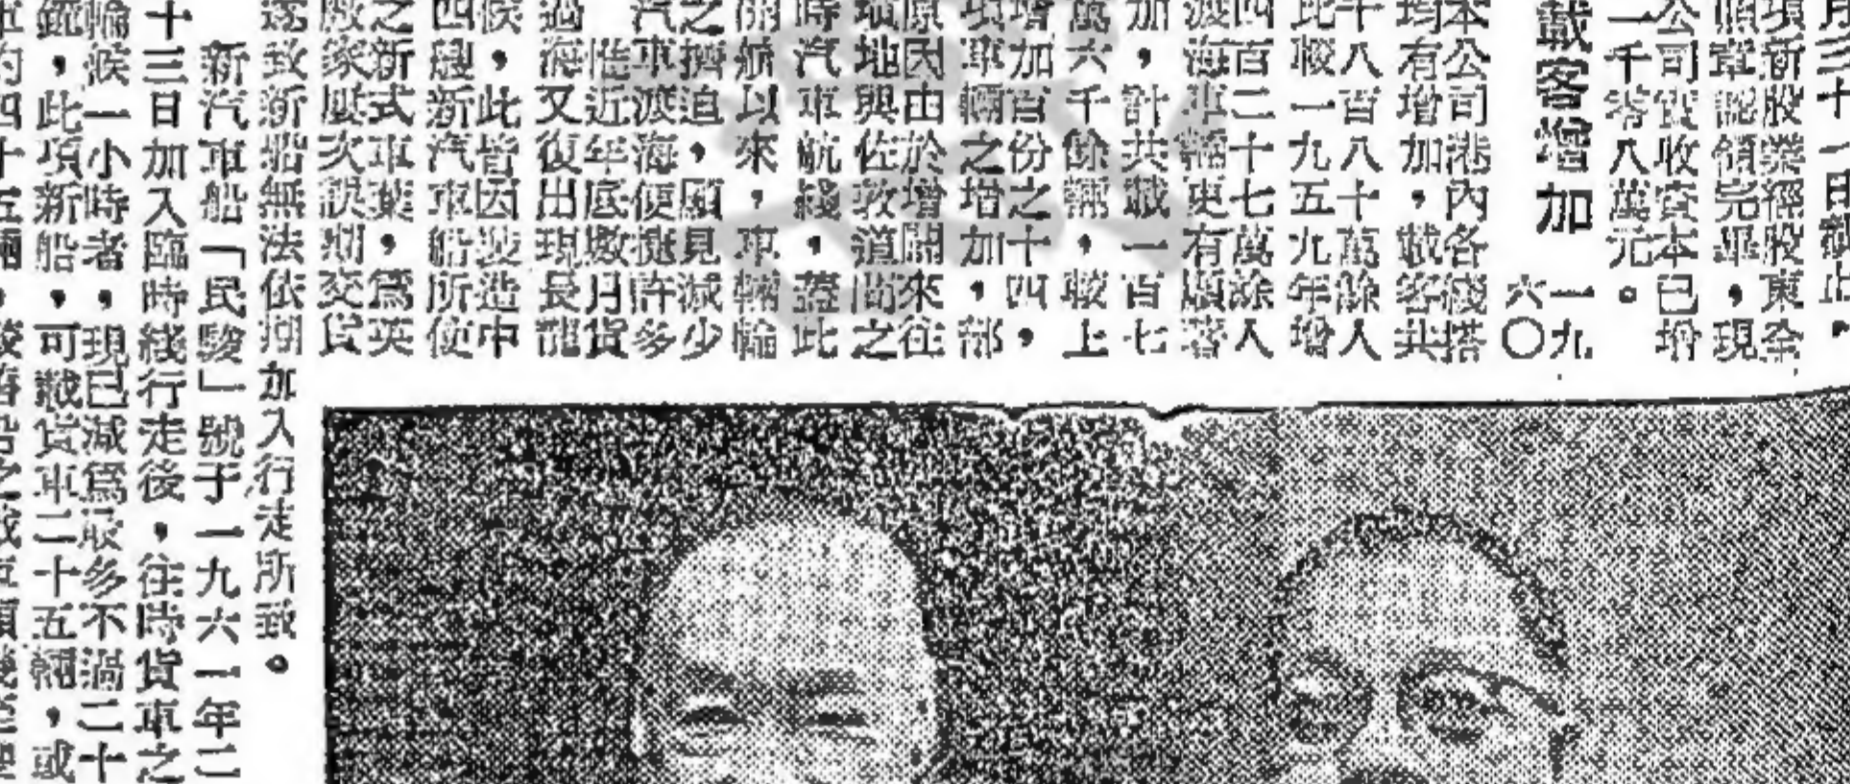 月三十一日截止。
項新股業經股東全
照章認領完畢，現
公司實收資本已增
一千零八萬元。
載客增加
一九
六〇
本公司港內各綫搭
均有增加，載客共
千八百八十萬餘人
比較一九五九年增
四百二十七萬餘人
渡海車輛更有顯著
加，計共載一百七
萬六千餘輛，較上
增加百份之十四，
項車輛之增加，部
原因由於增開來往
瑣地與佐敦道間之
時汽車航綫，蓋此
開航以來，車輛輪
之擠迫，顯見減少
汽車渡海便捷許多
惟近年底歲月貨
過海又復出現長龍
候，此皆因製造中
四艘新汽車船所使
之新式車葉，爲英
廠家屢次誤期交貨
遂致新船無法依期加入行走所致。
新汽車船「民駿」號于一九六一年二
十三日加入臨時綫行走後，往時貨車之
輪候一小時者，現已減爲最多不過二十
鐘，此項新船，可載貨車二十五輛，或
車約四十五輛，